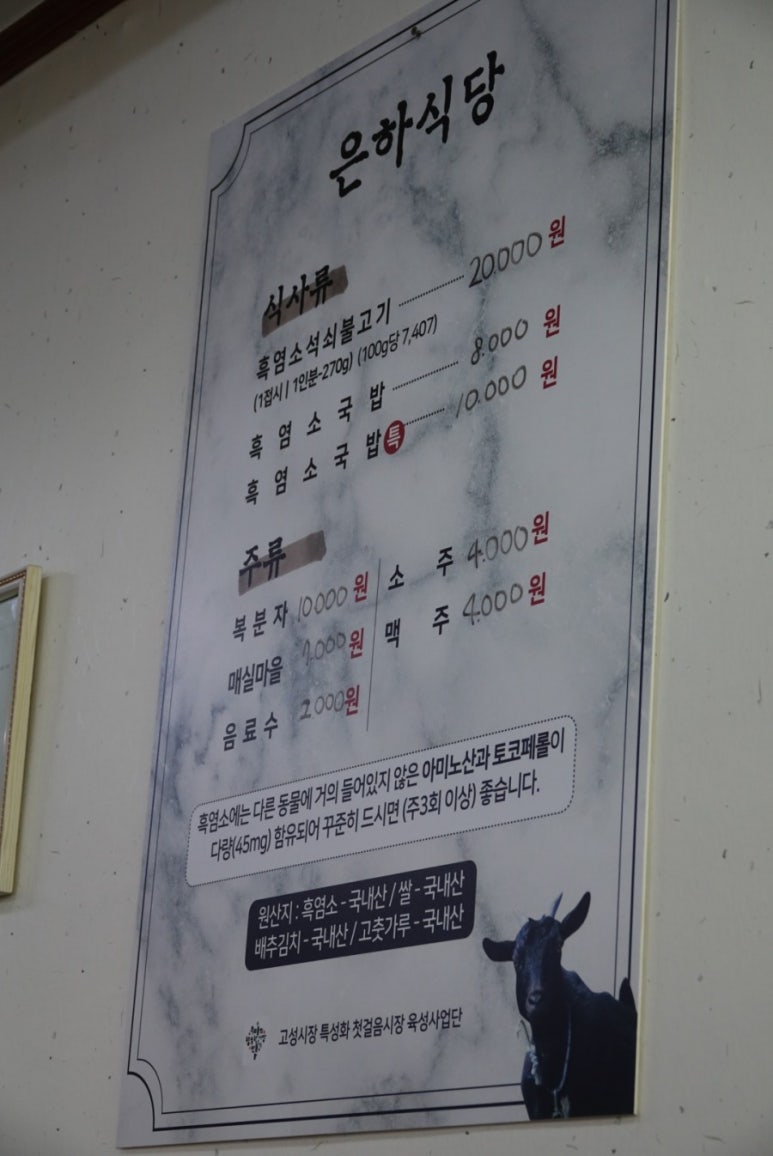 은하식당
식사류
흑염소석쇠불고기 20.000 원
(1접시 | 1인분-270g) (100g당 7,407)
흑 염 소 국 밥 8.000 원
흑 염 소 국 밥 특 10.000 원
주류
복분자 10000 원
소 주 4.000 원
매실마을 .000 원
맥 주 4.000 원
음료수 2.000 원
흑염소에는 다른 동물에 거의 들어있지 않은 아미노산과 토코페롤이
다량(45mg) 함유되어 꾸준히 드시면 (주3회 이상) 좋습니다.
원산지 : 흑염소 - 국내산 / 쌀 - 국내산
배추김치 - 국내산 / 고춧가루 - 국내산
고성시장 특성화 첫걸음시장 육성사업단